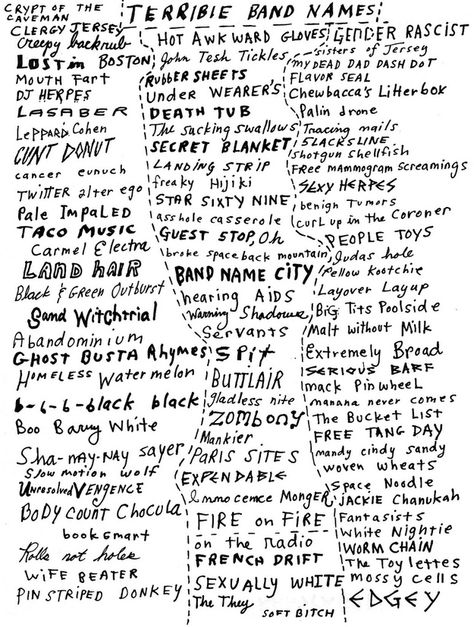 TERRIBLE BAND NAMES
CRYPT OF THE CAVEMAN
CLERGY JERSEY
Creepy backrub
LOST in BOSTON
MOUTH FART
DJ HERPES
LASABER
LEPPARD Cohen
CUNT DONUT
cancer eunuch
TWITTER alter ego
Pale IMPALED
TACO MUSIC
Carmel Electra
LAND HAIR
Black & Green Outburst
Sand Witchtrial
Abandominium
GHOST BUSTA RHYMES
HOMELESS Watermelon
b-6-6-black black
Boo Barry White
Sha-NAY-NAY sayer
Slow motion wolf
Unresolved VENGENCE
BODY COUNT Chocula
book smart
Rolls not holes
WIFE BEATER
PIN STRIPED DONKEY
HOT AWKWARD GLOVES
John Tesh Tickles
RUBBER SHEETS
Under WEARER'S
DEATH TUB
The sucking swallows
SECRET BLANKET
LANDING STRIP
freaky Hijiki
STAR SIXTY NINE
asshole casserole
GUEST STOP, Oh
broke spaceback mountain
BAND NAME CITY
hearing AIDS
Warning Shadows
Servants
SPIT
BUTTLAIR
gladless nite
ZOMBONY
Mankier
PARIS SITES
EXPENDABLE
Innocence Monger
FIRE on FIRE
on the radio
FRENCH DRIFT
SEXUALLY WHITE
The They
SOFT BITCH
GENDER RASCIST
sisters of Jersey
MY DEAD DAD DASH DOT
FLAVOR SEAL
Chewbacca's Litterbox
Palin drone
Tracing mails
SLACKSLINE
shotgun shellfish
FREE mammogram screamings
SEXY HERPES
benign Tumors
curl up in the Coroner
PEOPLE TOYS
Judas hole
Fellow Kootchie
Layover Layup
BIG Tits Poolside
Malt without Milk
Extremely Broad
SERIOUS BARF
mack Pinwheel
manana never comes
The Bucket List
FREE TANG DAY
mandy cindy sandy
woven wheats
Space Noodle
JACKIE Chanukah
Fantasists
White Nightie
WORM CHAIN
The Toylettes
mossy cells
EDGEY